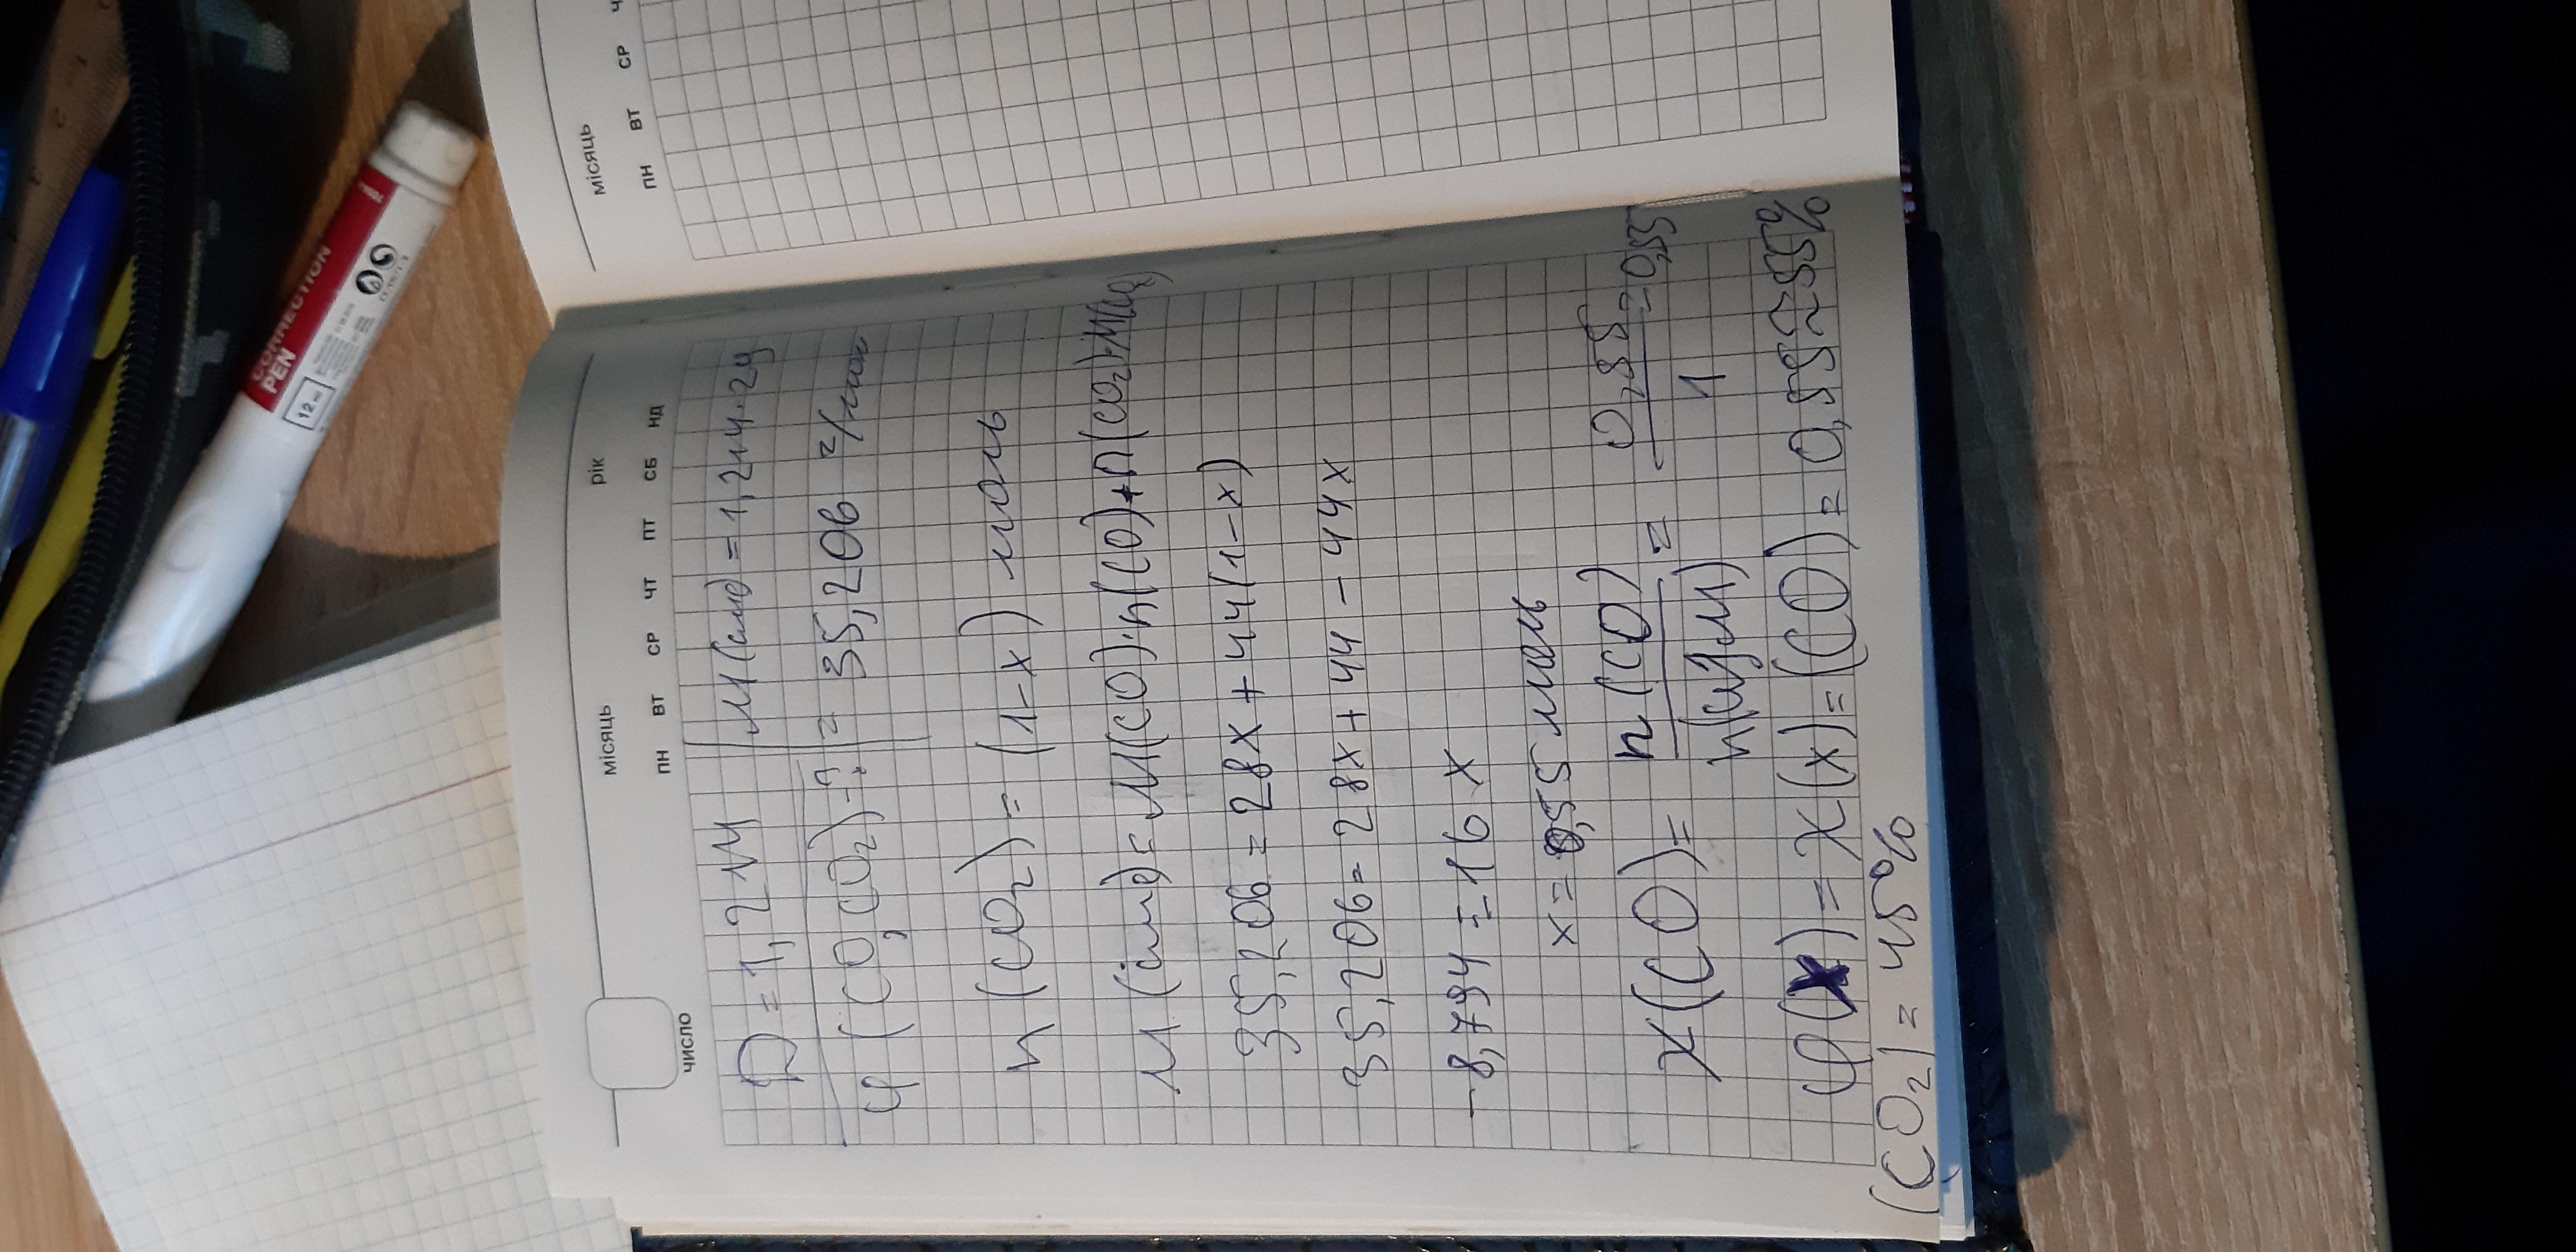 місяць
рік
число
пн вт ср чт пт сб нд
D = 1,214 | M(сум) = 1,214·29
φ(CO, CO2)-? | = 35,206 г/моль
n(CO2) = (1-x) моль
M(сум) = M(CO)·n(CO)+n(CO2)·M(CO2)
35,206 = 28x + 44(1-x)
35,206 = 28x + 44 - 44x
-8,794 = -16x
x = 0,55 моль
x(CO) = n(CO)/n(сум) = 0,55/1 = 0,55
φ(x) = x(x) = (CO) = 0,55 ~ 55%
(CO2) = 45%
місяць
пн вт ср ч
CORRECTION
PEN
12 ml